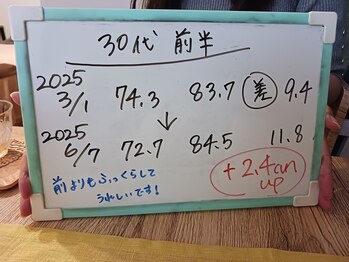 30代 前半
2025
3/1 74.3 83.7 差 9.4
↓
2025
6/7 72.7 84.5 11.8
前よりもふっくらして
うれしいです!
+2.4cm
up